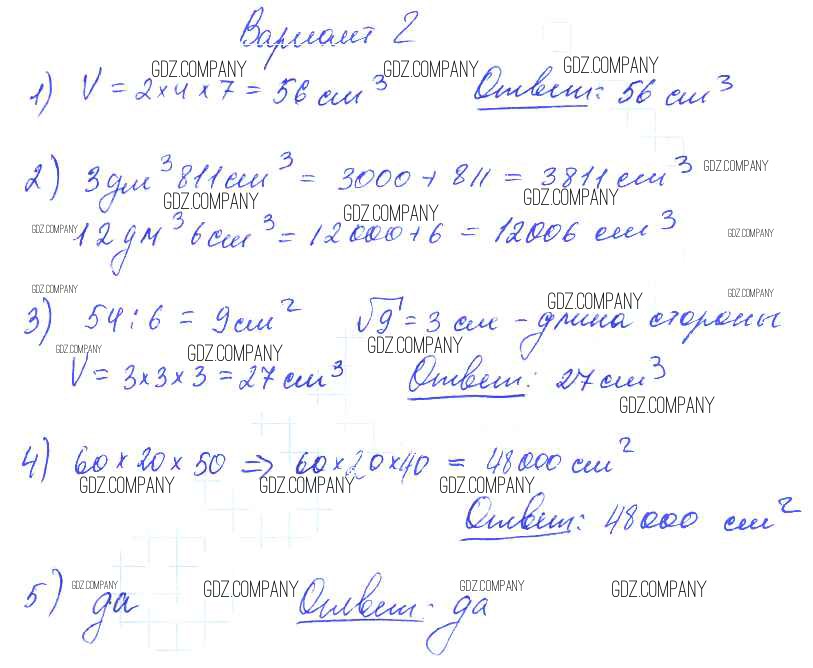 Вариант 2
GDZ.COMPANY GDZ.COMPANY GDZ.COMPANY
1) V = 2×4×7 = 56 см³ Ответ: 56 см³
2) 3 дм³ 811 см³ = 3000 + 811 = 3811 см³ GDZ.COMPANY
GDZ.COMPANY GDZ.COMPANY GDZ.COMPANY
GDZ.COMPANY 12 дм³ 6 см³ = 12000 + 6 = 12006 см³ GDZ.COMPANY
GDZ.COMPANY GDZ.COMPANY GDZ.COMPANY
3) 54 : 6 = 9 см² √9 = 3 см - длина стороны
GDZ.COMPANY GDZ.COMPANY GDZ.COMPANY
V = 3×3×3 = 27 см³ Ответ: 27 см³
GDZ.COMPANY
4) 60×20×50 => 60×20×40 = 48000 см²
GDZ.COMPANY GDZ.COMPANY GDZ.COMPANY
Ответ: 48000 см²
GDZ.COMPANY GDZ.COMPANY GDZ.COMPANY GDZ.COMPANY
5) да Ответ: да